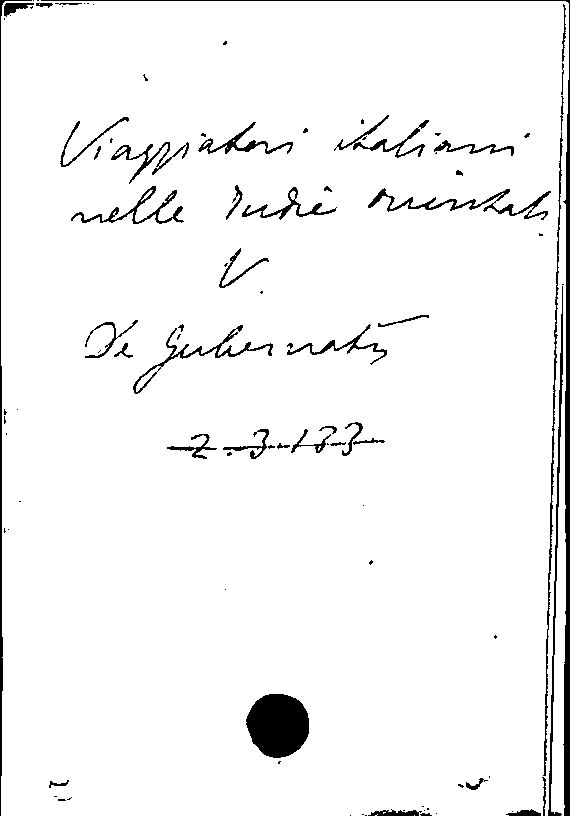 Viaggiatori italiani
nelle Indie orientali
V.
De Gubernatis
2.3.133